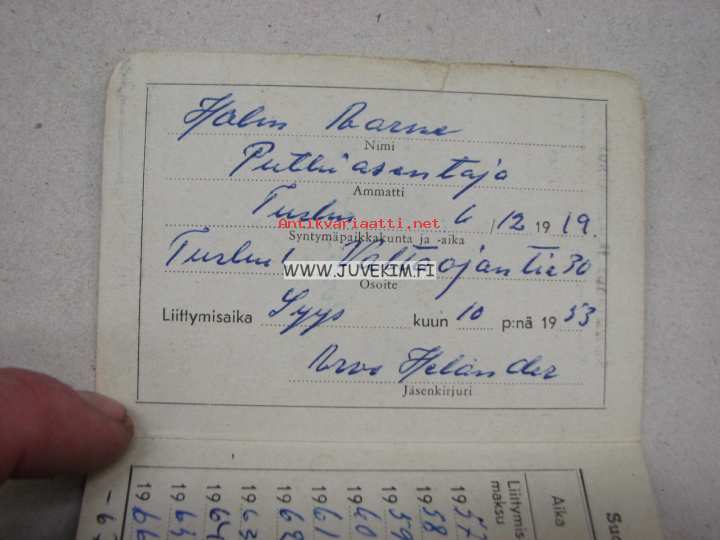 Holm Aarne
Nimi
Putkiasentaja
Ammatti
Turku 6/12 1919.
Antikvariaatti.net
Syntymäpaikkakunta ja -aika
Turku Valtaojantie 30
WWW.JUVEKIM.FI
Osoite
Liittymisaika Syys kuun 10 p:nä 1953
Arvo Helander
Jäsenkirjuri
Aika
Liittymis
maksu
1957
1958
1959
1960
1961
1962
1963
1964